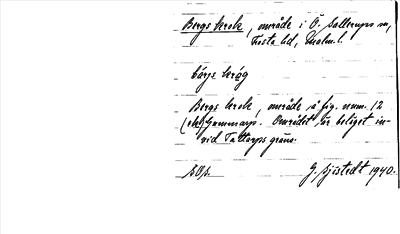 Bergs krok, område i Ö. Sallerups sn,
Frosta hd, Malm. l.
bärjs kråg
Bergs krok, område å fig. num. 12
Gummarp. Området är beläget in-
vid Tattarps gräns.
G. Sjöstedt 1940.